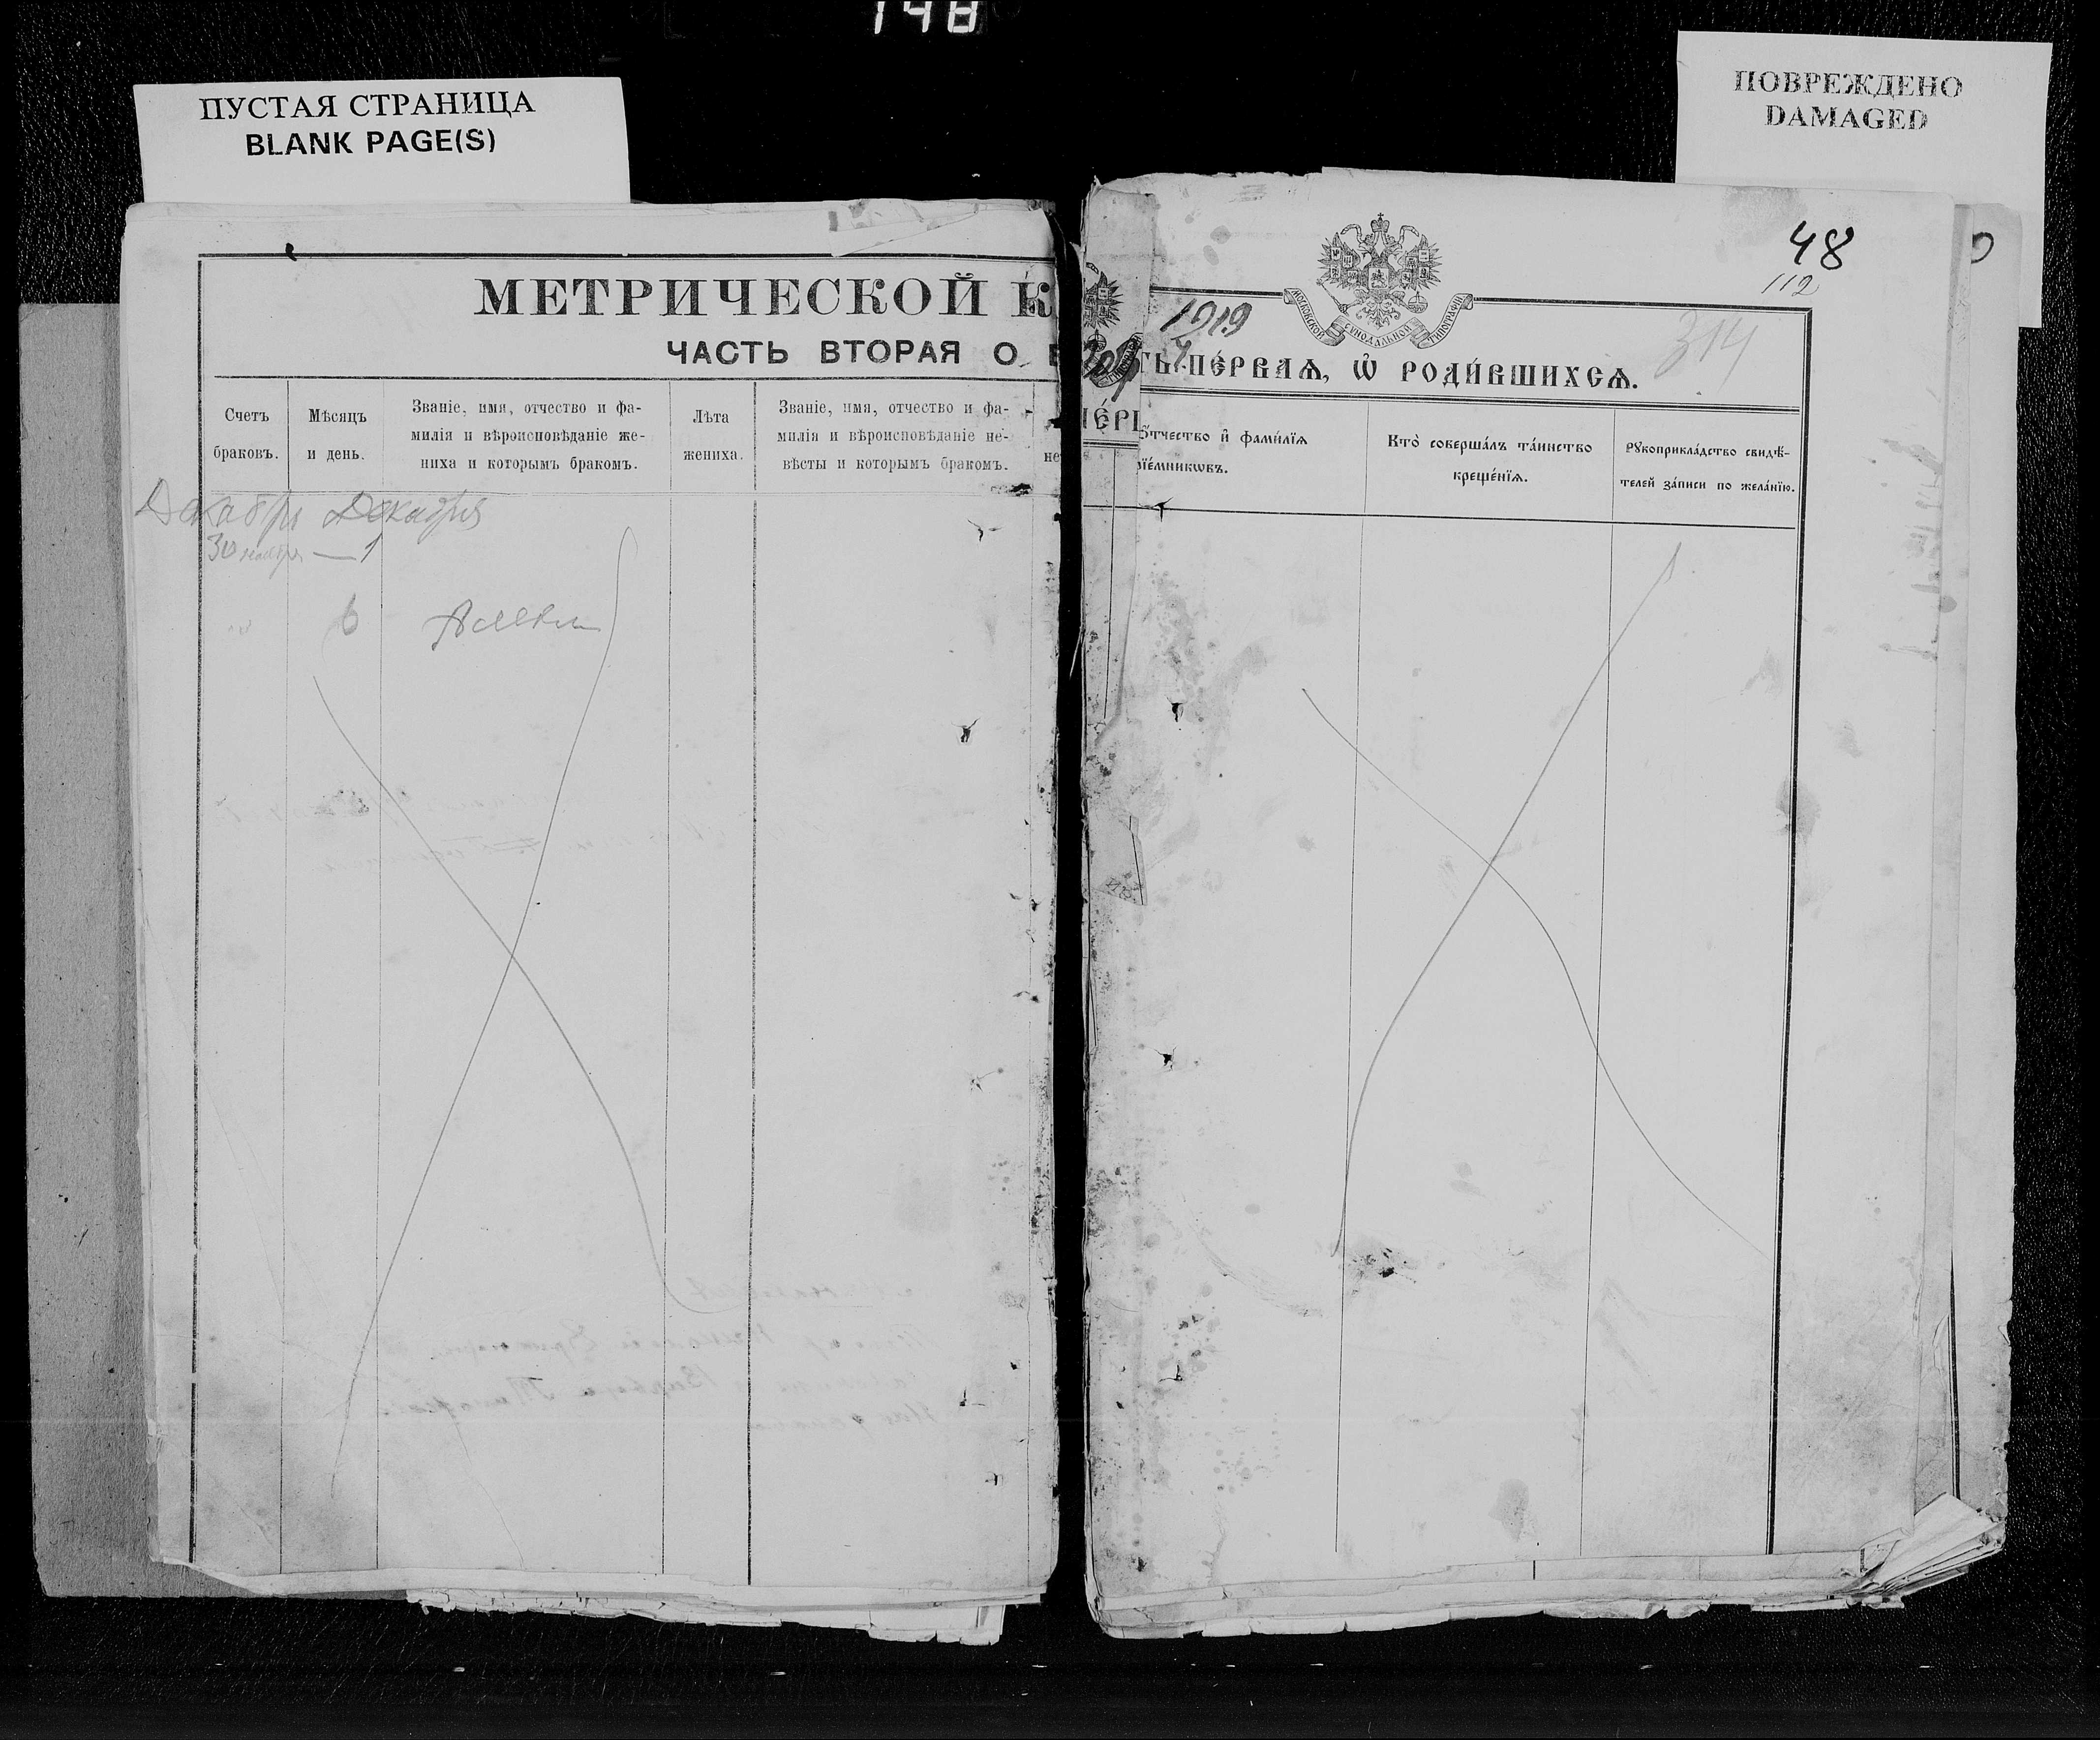 148
ПУСТАЯ СТРАНИЦА
BLANK PAGE(S)
ПОВРЕЖДЕНО
DAMAGED
МЕТРИЧЕСКОЙ К
ЧАСТЬ ВТОРАЯ О
Счетъ браковъ.
Мѣсяцъ и день.
Званіе, имя, отчество и фа-
милія и вѣроисповѣданіе же-
ниха и которымъ бракомъ.
Лѣта жениха.
Званіе, имя, отчество и фа-
милія и вѣроисповѣданіе не-
вѣсты и которымъ бракомъ.
не
Декабрь Декабрия
30 ноября — 1
6
48
112
1919
314
МОСКОВСКОЙ СѴНОДАЛЬНОЙ ТИПОГРАФІИ
ТЬ ПЕ́РВАѦ, Ѽ РОДИ́ВШИХСѦ.
О҆́тчество и҆ фами́лїѧ
рїе́мникѡвъ.
Кто̀ соверша́лъ та́инство
креще́нїѧ.
Рꙋкоприкла́дство свидѣ́-
телей за́писи по жела́нїю.